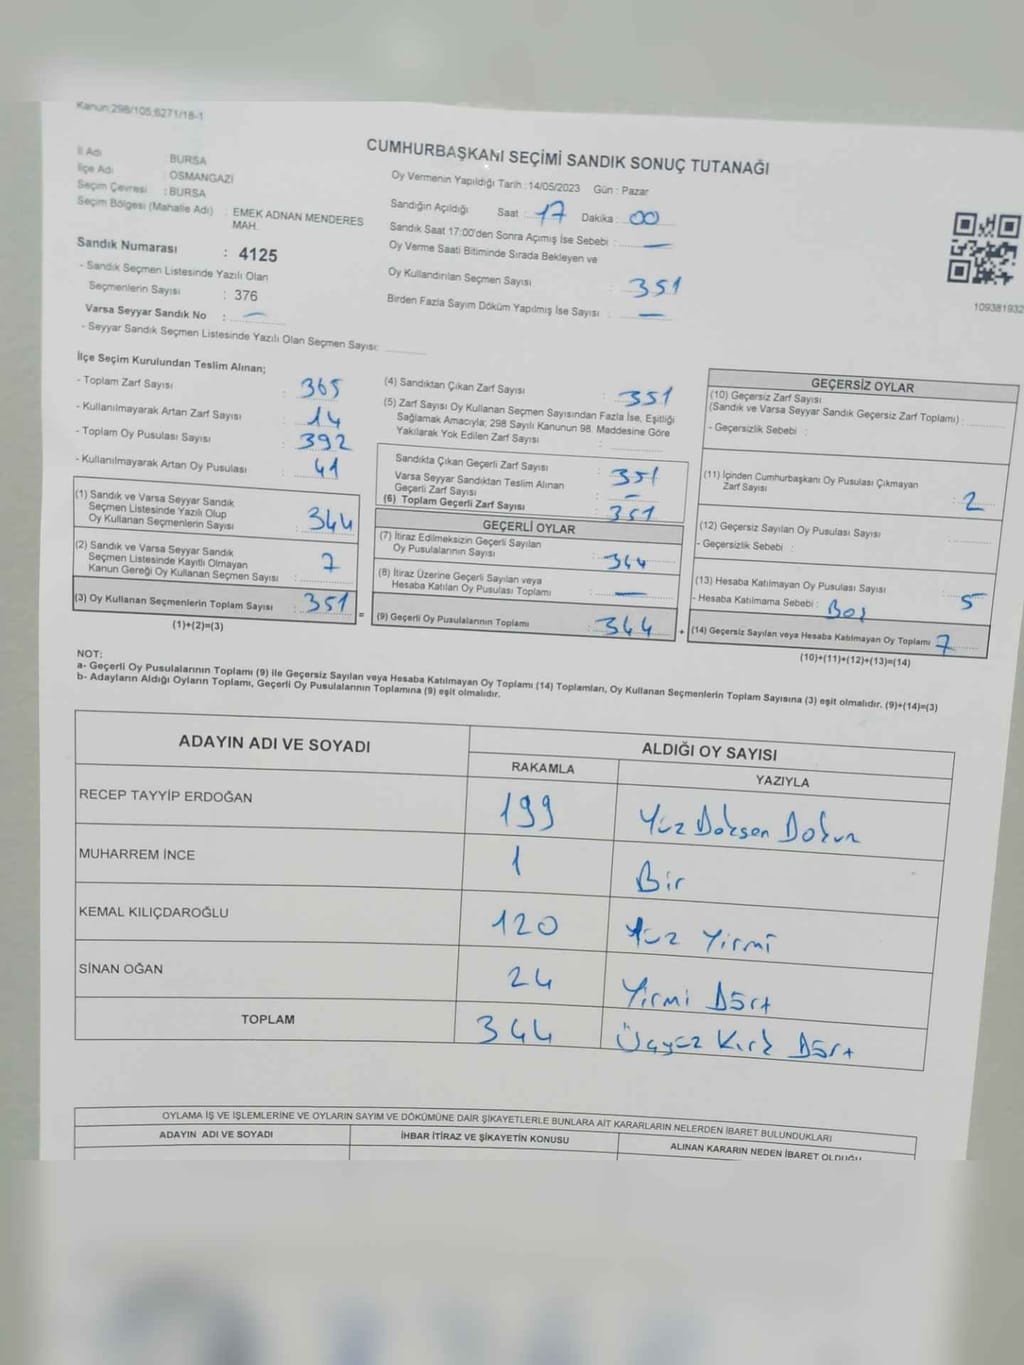 Kanun:298/105,6271/18-1
CUMHURBAŞKANI SEÇİMİ SANDIK SONUÇ TUTANAĞI
İl Adı : BURSA
İlçe Adı : OSMANGAZİ
Seçim Çevresi : BURSA
Seçim Bölgesi (Mahalle Adı) : EMEK ADNAN MENDERES
MAH.
Sandık Numarası : 4125
- Sandık Seçmen Listesinde Yazılı Olan
Seçmenlerin Sayısı : 376
Varsa Seyyar Sandık No : —
- Seyyar Sandık Seçmen Listesinde Yazılı Olan Seçmen Sayısı:
Oy Vermenin Yapıldığı Tarih : 14/05/2023 Gün : Pazar
Sandığın Açıldığı Saat : 17 Dakika : 00
Sandık Saat 17:00'den Sonra Açımış İse Sebebi : —
Oy Verme Saati Bitiminde Sırada Bekleyen ve
Oy Kullandırılan Seçmen Sayısı : 351
Birden Fazla Sayım Döküm Yapılmış İse Sayısı : —
109381932
İlçe Seçim Kurulundan Teslim Alınan;
- Toplam Zarf Sayısı : 365
- Kullanılmayarak Artan Zarf Sayısı : 14
- Toplam Oy Pusulası Sayısı : 392
- Kullanılmayarak Artan Oy Pusulası : 41
(1) Sandık ve Varsa Seyyar Sandık
Seçmen Listesinde Yazılı Olup
Oy Kullanan Seçmenlerin Sayısı : 344
(2) Sandık ve Varsa Seyyar Sandık
Seçmen Listesinde Kayıtlı Olmayan
Kanun Gereği Oy Kullanan Seçmen Sayısı : 7
(3) Oy Kullanan Seçmenlerin Toplam Sayısı : 351 =
(1)+(2)=(3)
(4) Sandıktan Çıkan Zarf Sayısı : 351
(5) Zarf Sayısı Oy Kullanan Seçmen Sayısından Fazla İse, Eşitliği
Sağlamak Amacıyla; 298 Sayılı Kanunun 98. Maddesine Göre
Yakılarak Yok Edilen Zarf Sayısı :
Sandıkta Çıkan Geçerli Zarf Sayısı : 351
Varsa Seyyar Sandıktan Teslim Alınan
Geçerli Zarf Sayısı : —
(6) Toplam Geçerli Zarf Sayısı : 351
GEÇERLİ OYLAR
(7) İtiraz Edilmeksizin Geçerli Sayılan
Oy Pusulalarının Sayısı : 344
(8) İtiraz Üzerine Geçerli Sayılan veya
Hesaba Katılan Oy Pusulası Toplamı : —
(9) Geçerli Oy Pusulalarının Toplamı : 344 +
GEÇERSİZ OYLAR
(10) Geçersiz Zarf Sayısı
(Sandık ve Varsa Seyyar Sandık Geçersiz Zarf Toplamı) :
- Geçersizlik Sebebi :
(11) İçinden Cumhurbaşkanı Oy Pusulası Çıkmayan
Zarf Sayısı : 2
(12) Geçersiz Sayılan Oy Pusulası Sayısı :
- Geçersizlik Sebebi :
(13) Hesaba Katılmayan Oy Pusulası Sayısı : 5
- Hesaba Katılmama Sebebi : Boş
(14) Geçersiz Sayılan veya Hesaba Katılmayan Oy Toplamı 7
(10)+(11)+(12)+(13)=(14)
NOT:
a- Geçerli Oy Pusulalarının Toplamı (9) ile Geçersiz Sayılan veya Hesaba Katılmayan Oy Toplamı (14) Toplamları, Oy Kullanan Seçmenlerin Toplam Sayısına (3) eşit olmalıdır. (9)+(14)=(3)
b- Adayların Aldığı Oyların Toplamı, Geçerli Oy Pusulalarının Toplamına (9) eşit olmalıdır.
ADAYIN ADI VE SOYADI ALDIĞI OY SAYISI
RAKAMLA YAZIYLA
RECEP TAYYİP ERDOĞAN 199 Yüz Doksan Dokuz
MUHARREM İNCE 1 Bir
KEMAL KILIÇDAROĞLU 120 Yüz Yirmi
SİNAN OĞAN 24 Yirmi Dört
TOPLAM 344 Üçyüz Kırk Dört
OYLAMA İŞ VE İŞLEMLERİNE VE OYLARIN SAYIM VE DÖKÜMÜNE DAİR ŞİKAYETLERLE BUNLARA AİT KARARLARIN NELERDEN İBARET BULUNDUKLARI
ADAYIN ADI VE SOYADI İHBAR İTİRAZ VE ŞİKAYETİN KONUSU ALINAN KARARIN NEDEN İBARET OLDUĞU